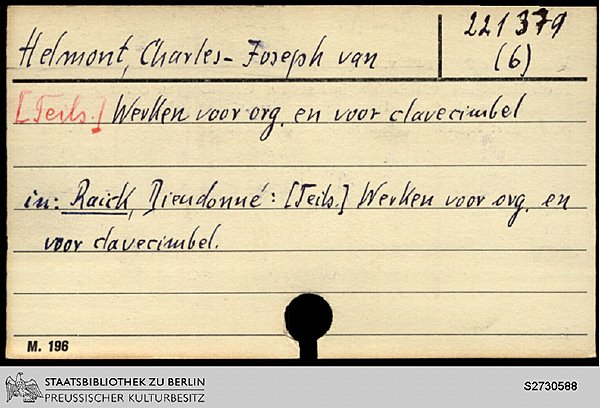 Helmont, Charles-Joseph van
221379
(6)
[Teils.] Werken voor org. en voor clavecimbel
in: Raick, Dieudonné: [Teils.] Werken voor org. en
voor clavecimbel.
M. 196
STAATSBIBLIOTHEK ZU BERLIN
PREUSSISCHER KULTURBESITZ
S2730588